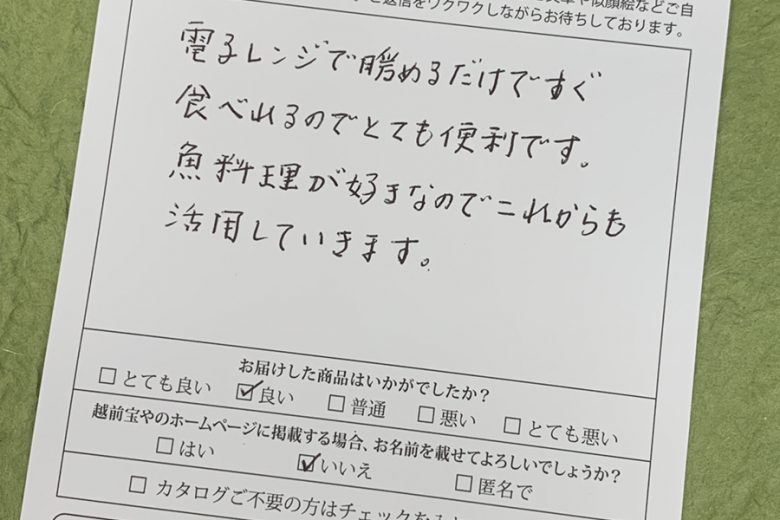 返信をワクワクしながらお待ちしております。
電子レンジで暖めるだけですぐ
食べれるのでとても便利です。
魚料理が好きなのでこれからも
活用していきます。
お届けした商品はいかがでしたか？
☐ とても良い ☑良い ☐ 普通 ☐ 悪い ☐ とても悪い
越前宝やのホームページに掲載する場合、お名前を載せてよろしいでしょうか？
☐ はい ☑いいえ ☐ 匿名で
☐ カタログご不要の方はチェックを